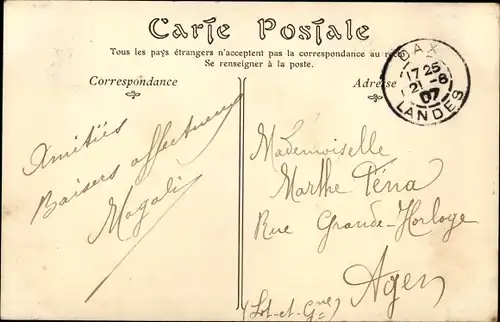 Carte Postale
Tous les pays étrangers n'acceptent pas la correspondance au recto
Se renseigner à la poste.
Correspondance
Adresse
DAX
17 25
21 -8
07
LANDES
Amitiés
Baisers affectueux
Magali
Mademoiselle
Marthe Téna
Rue Grande-Horloge
Agen
(Lot-et-Gne)